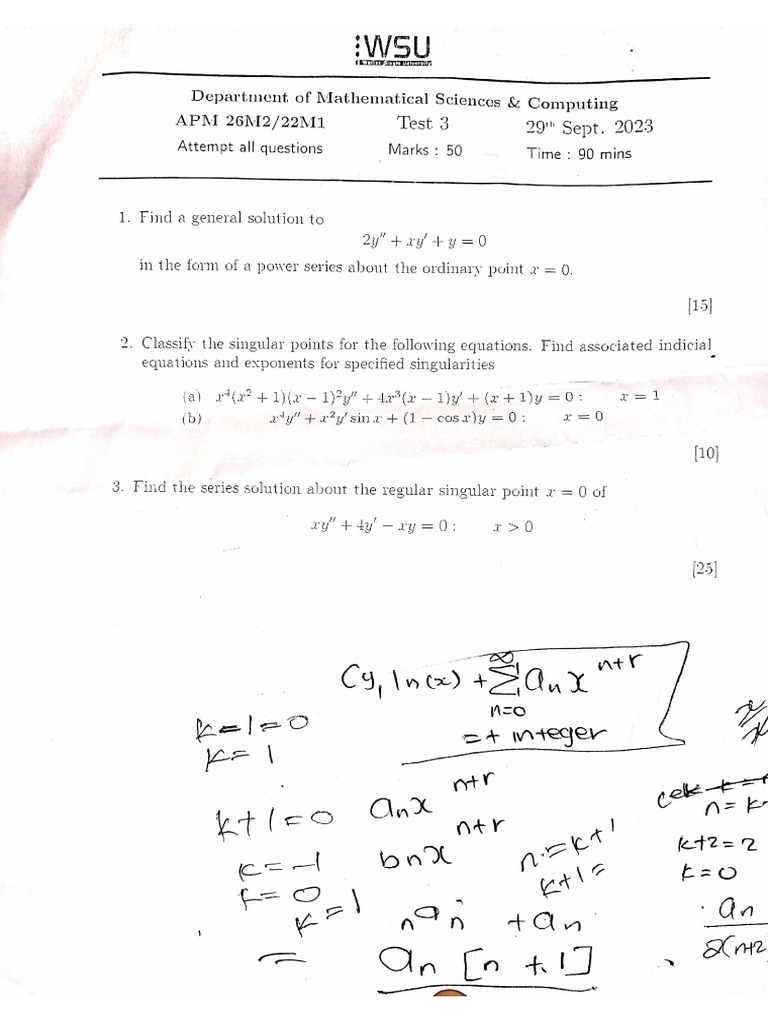 WSU
Department of Mathematical Sciences & Computing
APM 26M2/22M1 Test 3 29th Sept. 2023
Attempt all questions Marks : 50 Time : 90 mins
1. Find a general solution to
2y″ + xy′ + y = 0
in the form of a power series about the ordinary point x = 0.
[15]
2. Classify the singular points for the following equations. Find associated indicial
equations and exponents for specified singularities
(a) x⁴(x² + 1)(x − 1)²y″ + 4x³(x − 1)y′ + (x + 1)y = 0 : x = 1
(b) x⁴y″ + x²y′ sin x + (1 − cos x)y = 0 : x = 0
[10]
3. Find the series solution about the regular singular point x = 0 of
xy″ + 4y′ − xy = 0 : x > 0
[25]
Cy₁ ln(x) + ∞ Σ n=0 aₙ x^(n+r)
= + integer
k−1=0
k=1
k+1=0 aₙx^(n+r)
k=−1 bnx^(n+r)
k=0
k=1
n=k+1
k+1=
n=k
k+2=2
k=0
n aₙ + aₙ
= aₙ [n + 1]
aₙ
2(n+2